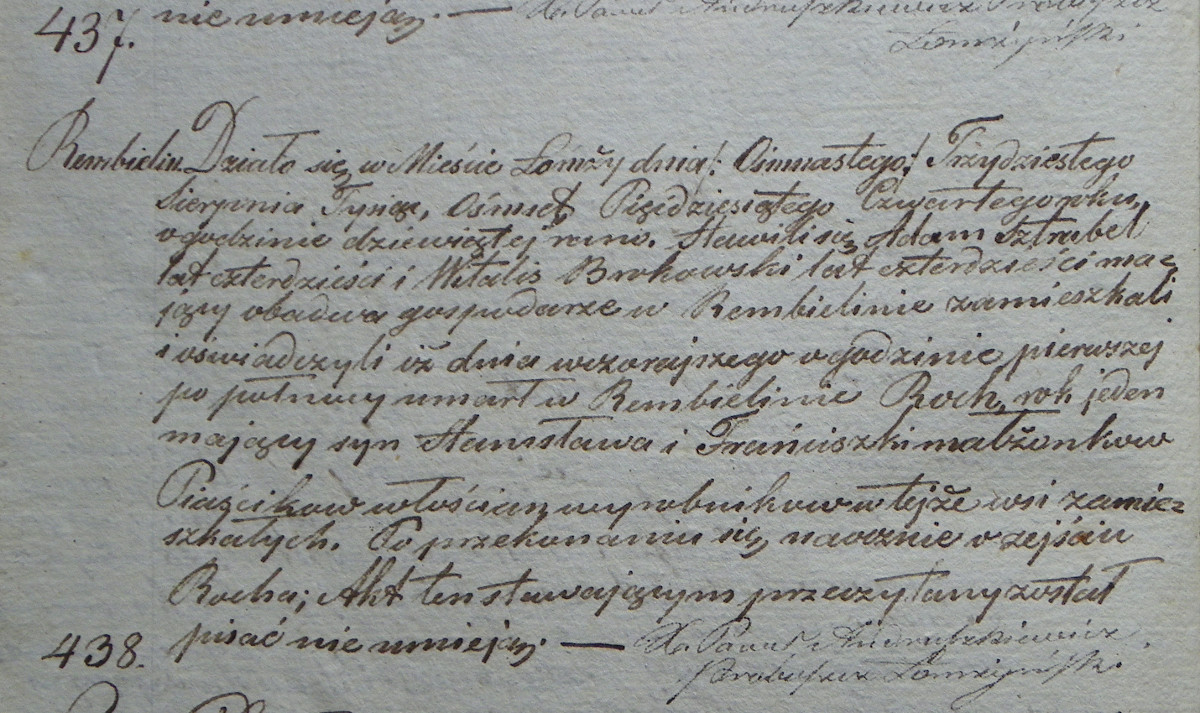 nie umieją. — Xa. Paweł Andruszkiewicz Proboszcz
437.
Łomżyński
Rembielin. Działo się w Mieście Łomży dnia /: Ośmnastego :/ Trzydziestego
Sierpnia Tysiąc, Ośmset, Pięćdziesiątego Czwartego roku,
o godzinie dziewiątej rano. Stawili się Adam Sztrabel
lat czterdzieści i Witalis Brokowski lat czterdzieści ma=
jący obadwa gospodarze w Rembielinie zamieszkali
i oświadczyli iż dnia wczorajszego o godzinie pierwszej
po połnocy umarł w Rembielinie Roch, rok jeden
mający syn Stanisława i Frańciszki małżonkow
Piaścikow włościan wyrobnikow w tejże wsi zamie=
szkałych. Po przekonaniu się naocznie o zejściu
Rocha; Akt ten stawającym przeczytany został
pisać nie umieją. — Xa. Paweł Andruszkiewicz
438.
Proboszcz Łomżyński